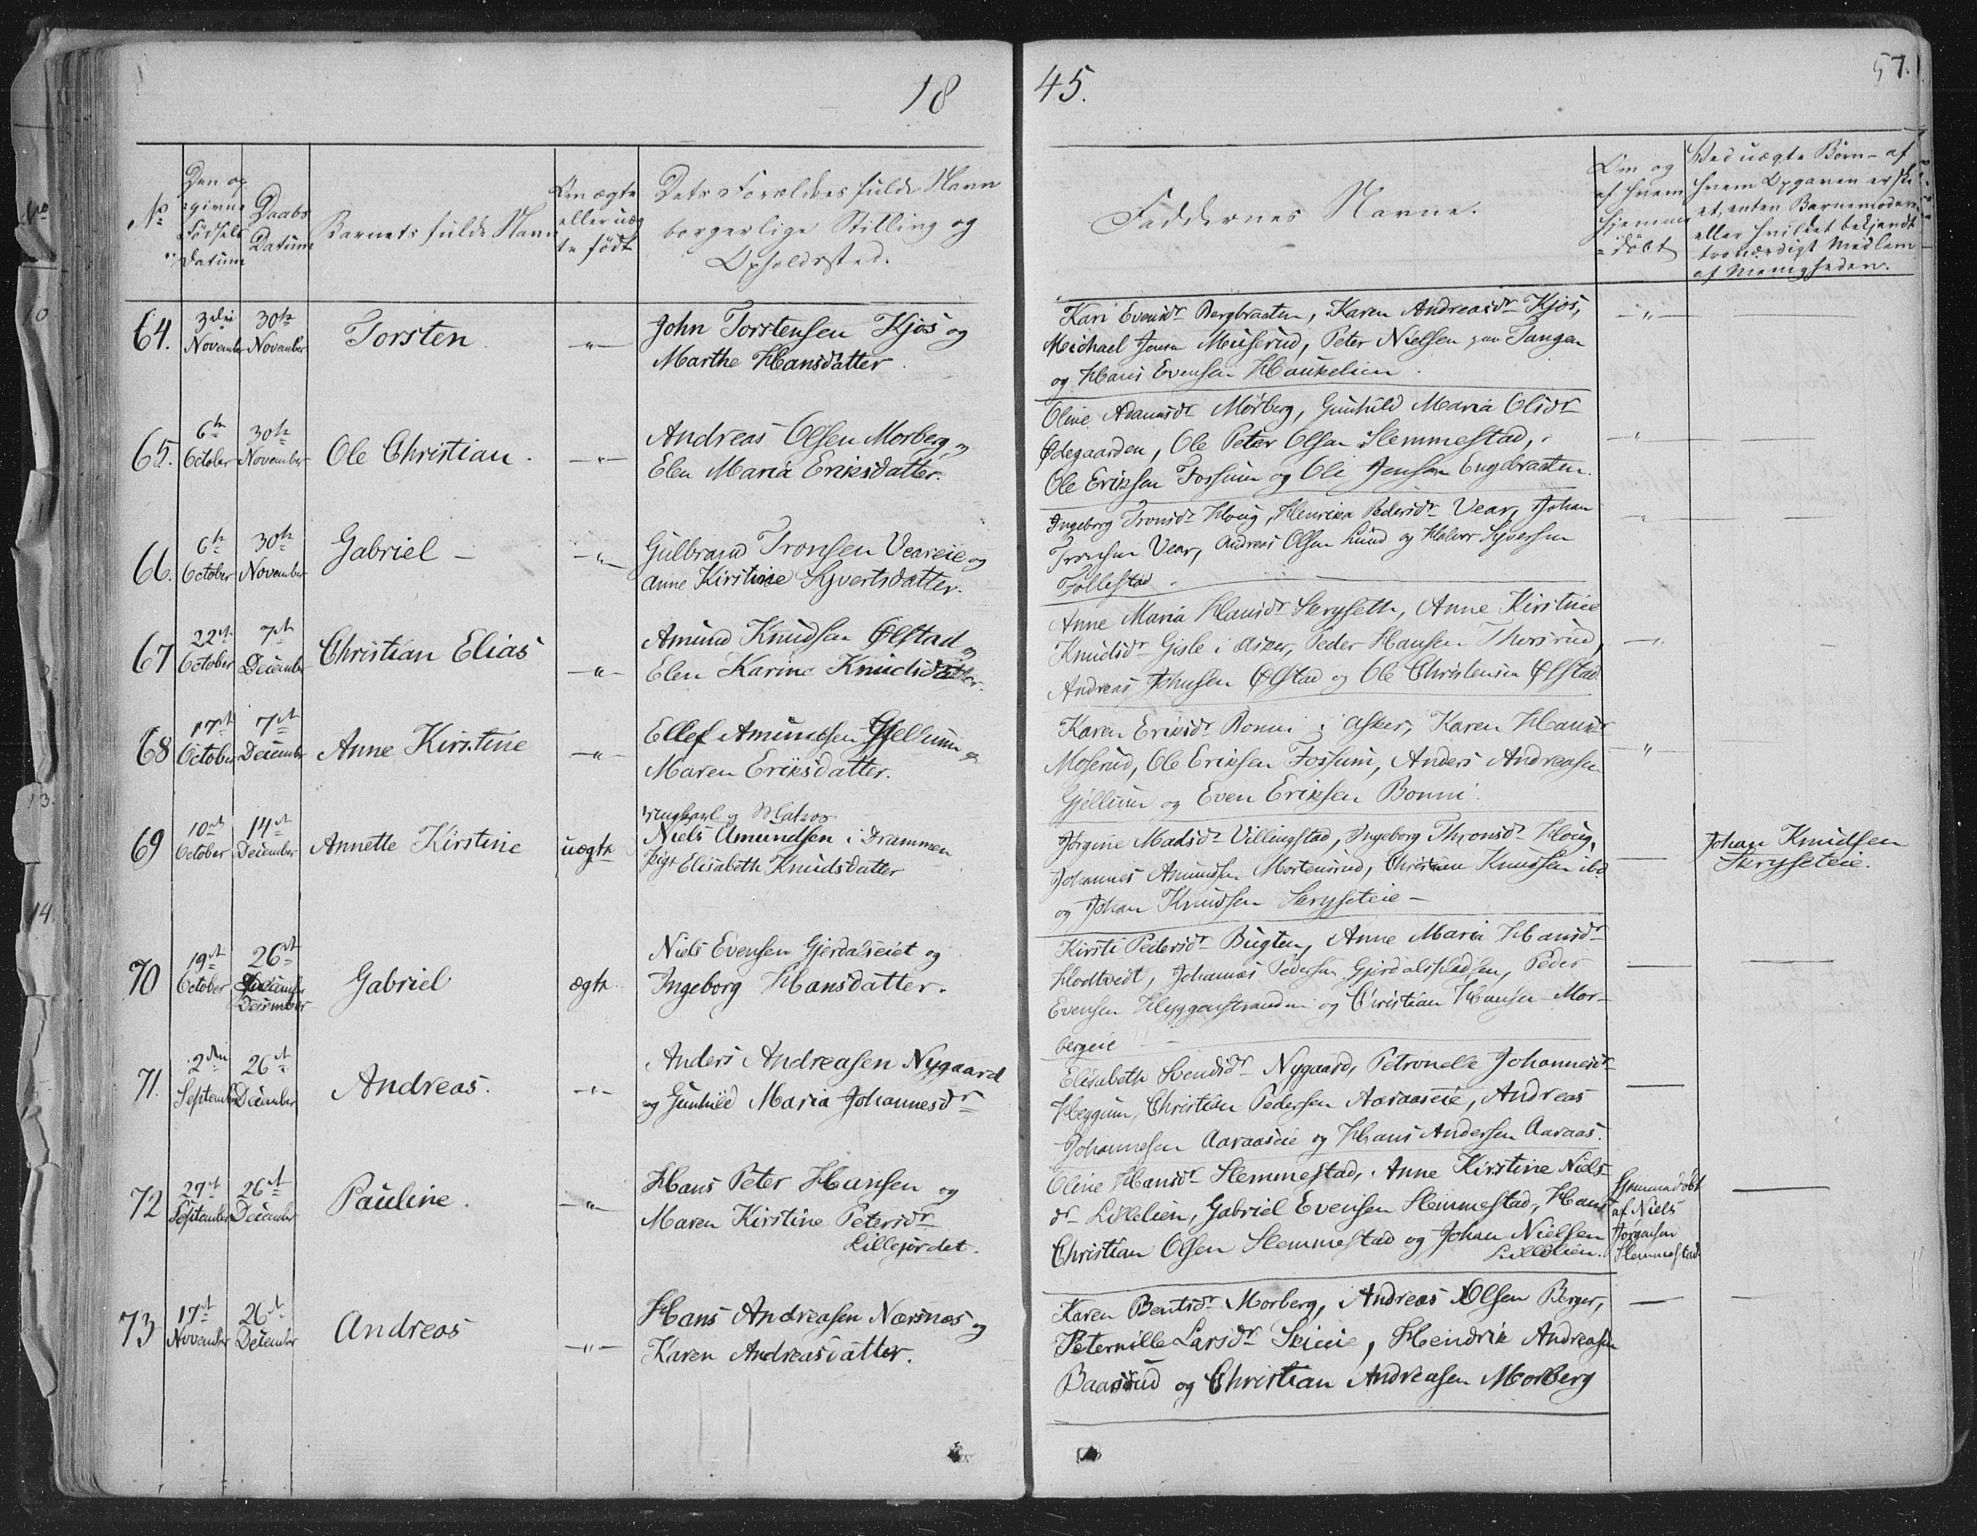 18
45.
57.
No
Den og
givne
Fødsels
Datum
Daabs
Datum
Barnets fulde Navn
Om ægte
eller uæg
te født
Dets Forældres fulde Navn
borgerlige Stilling og
Opholdssted.
Faddernes Navne.
Om og
af hvem
hjemme
døbt
Ved uægte Børn - af
hvem Opgaven er ske
et, enten Barnemoderen
eller hvilket bekjendt
troværdigt Medlem
af Menigheden.
64.
3die
November
30te
November
Torsten
—"—
John Torstensen Kjos og
Marthe Hansdatter.
Kari Evensdr Bergbraaten, Karen Andreasdr Kjos,
Michael Jensen Muserud, Peter Nielsen Tangen
og Hans Evensen Haukelien.
65.
6te
October
30te
November
Ole Christian.
—"—
Andreas Olsen Morberg og
Elen Maria Eriksdatter.
Oline Adamsdr Mørberg, Gunhild Maria Olsdr
Ødegaarden, Ole Peter Olsen Slemmestad,
Ole Eriksen Fossum og Ole Jensen Engebraaten.
66.
6te
October
30te
November
Gabriel —
—"—
Gulbrand Tronsen Veareie og
Anne Kirstine Syvertsdatter.
Ingeborg Tronsdr Houg, Henrica Pedersdr Vear, Johan
Tronsen Vear, Andreas Olsen Lund og Halvor Syversen
Follestad.
67
22de
October
7de
December
Christian Elias
—"—
Amund Knudsen Ølstad og
Elen Karine Knudsdatter.
Anne Maria Hansdr Skryseth, Anne Kirstine
Knudsdr Gisle i Asker, Peder Hansen Thorsrud,
Andreas Johnsen Ølstad og Ole Christensen Ølstad
68
17de
October
7de
December
Anne Kirstine
—"—
Ellef Amundsen Gjellum og
Maren Eriksdatter.
Karen Eriksdr Bonni i Asker, Karen Hansdr
Moserud, Ole Eriksen Fossum, Anders Andreasen
Gjellum og Even Eriksen Bonni.
69
10de
October
14de
December
Annette Kirstine
uægte
Ungkarl og Matros
Niels Amundsen i Drammen
Pige Elisabeth Knudsdatter
Jørgine Madsdr Villingstad, Ingeborg Thronsdr Houg,
Johannes Amundsen Mortensrud, Christian Knudsen ibd
og Johan Knudsen Skryseteie —
Johan Knudsen
Skryseteie.
70
19de
October
26de
December
December
Gabriel
ægte
Niels Evensen Gjerdalseiet og
Ingeborg Hansdatter.
Kirsti Pedersdr Bugten, Anne Maria Hansdr
Hodtvedt, Johannes Pedersen Gjerdalspladsen, Peder
Evensen Heggenstranden og Christian Hansen Mor-
bergeie
71.
2den
September
26de
December
Andreas.
—"—
Anders Andreasen Nygaard
og Gunhild Maria Johannesdr
Elisabeth Svendsdr Nygaard, Petronelle Johannesdr
Heggum, Christian Pedersen Aaraaseie, Andreas
Johannesen Aaraaseie og Hans Andersen Aaraas.
72
27de
September
26de
December
Pauline.
—"—
Hans Peter Hansen og
Maren Kirstine Petersdr
Lillejordet.
Oline Hansdr Slemmestad, Anne Kirstine Niels
dr Lillelien, Gabriel Evensen Slemmestad, Hans
Christian Olsen Slemmestad og Johan Nielsen
Lillelien.
Hjemmedøbt
af Niels
Jørgensen
Slemmestad
73
17de
November
26de
December
Andreas
—"—
Hans Andreasen Nærsnæs og
Karen Andreasdatter.
Karen Bentsdr Morberg, Andreas Olsen Berger,
Peternille Larsdr Skieie, Hendrik Andreasen
Baarsrud og Christian Andreasen Morberg